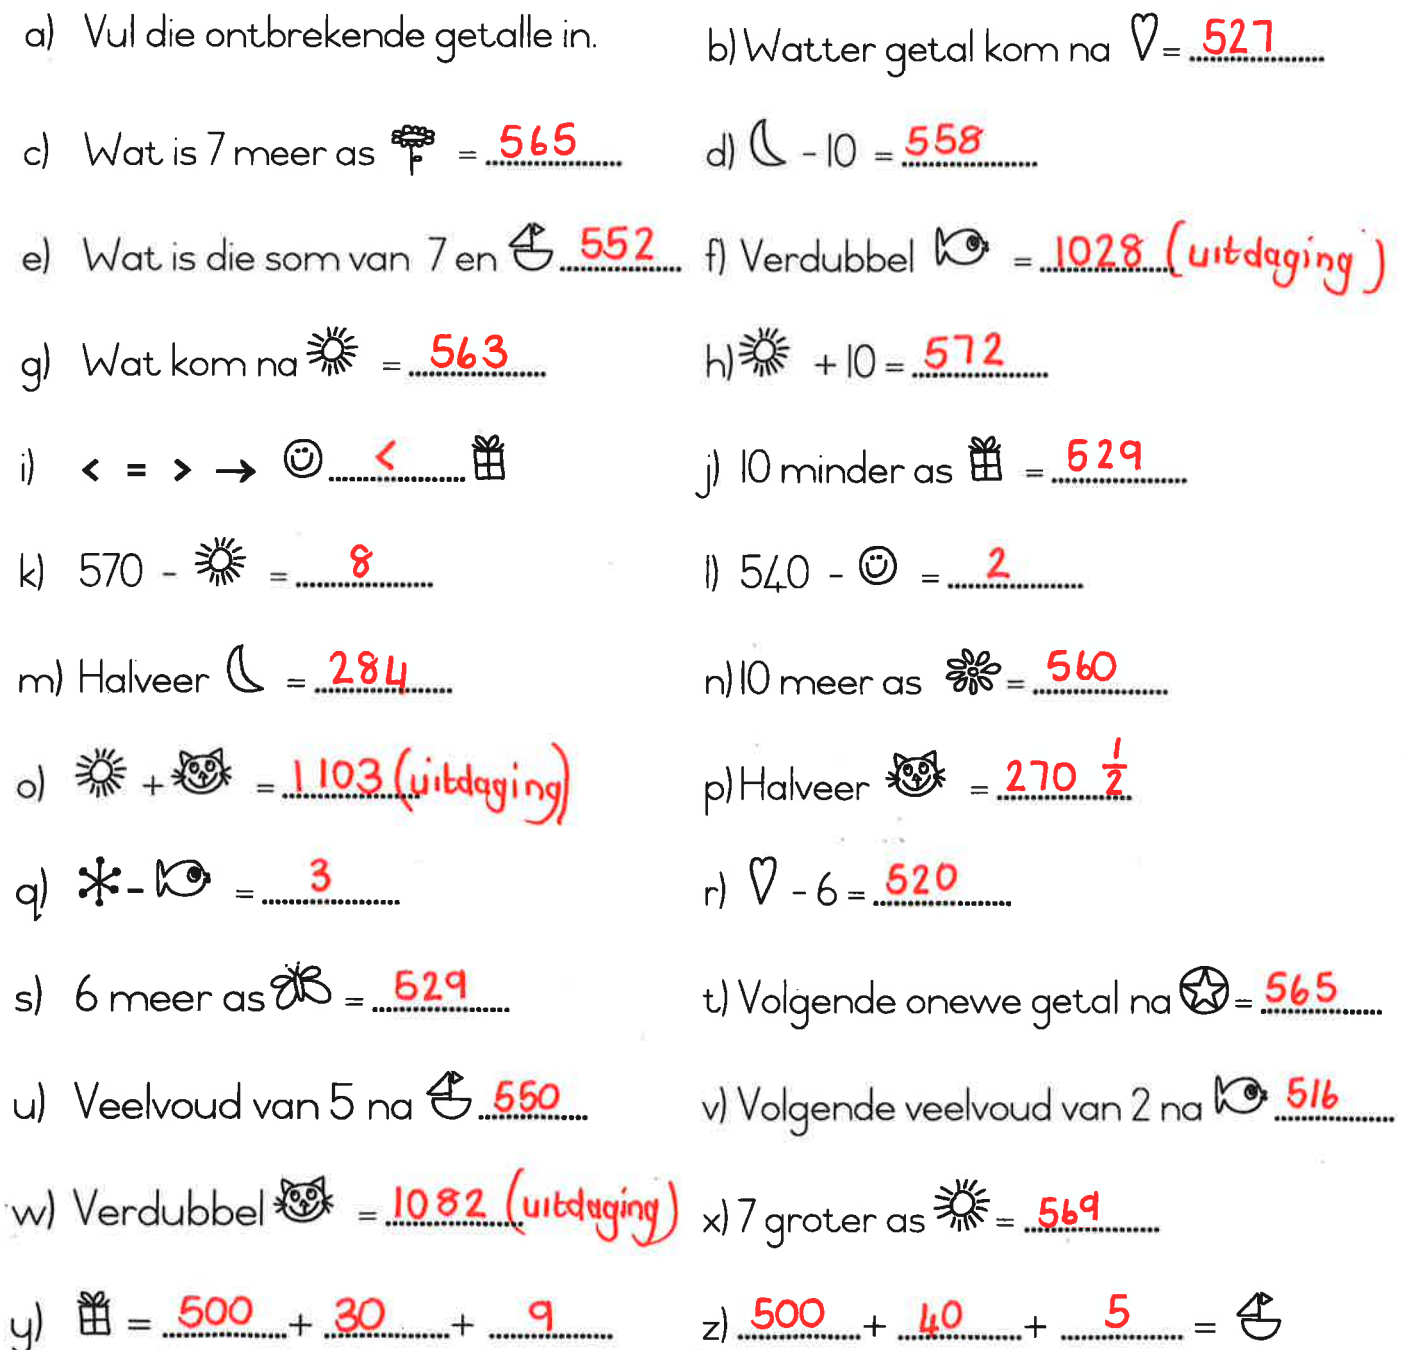 a) Vul die ontbrekende getalle in.
b) Watter getal kom na = 527
c) Wat is 7 meer as = 565
d) - 10 = 558
e) Wat is die som van 7 en 552
f) Verdubbel = 1028 (uitdaging)
g) Wat kom na = 563
h) + 10 = 572
i) < = > → <
j) 10 minder as = 529
k) 570 - = 8
l) 540 - = 2
m) Halveer = 284
n) 10 meer as = 560
o) + = 1103 (uitdaging)
p) Halveer = 270 1/2
q) - = 3
r) - 6 = 520
s) 6 meer as = 529
t) Volgende onewe getal na = 565
u) Veelvoud van 5 na 550
v) Volgende veelvoud van 2 na 516
w) Verdubbel = 1082 (uitdaging)
x) 7 groter as = 569
y) = 500 + 30 + 9
z) 500 + 40 + 5 =